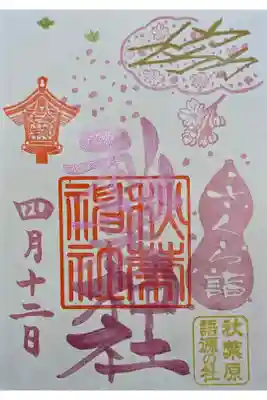 さくら詣
秋葉原
語源の社
秋葉神社
秋葉
神社
四月十二日